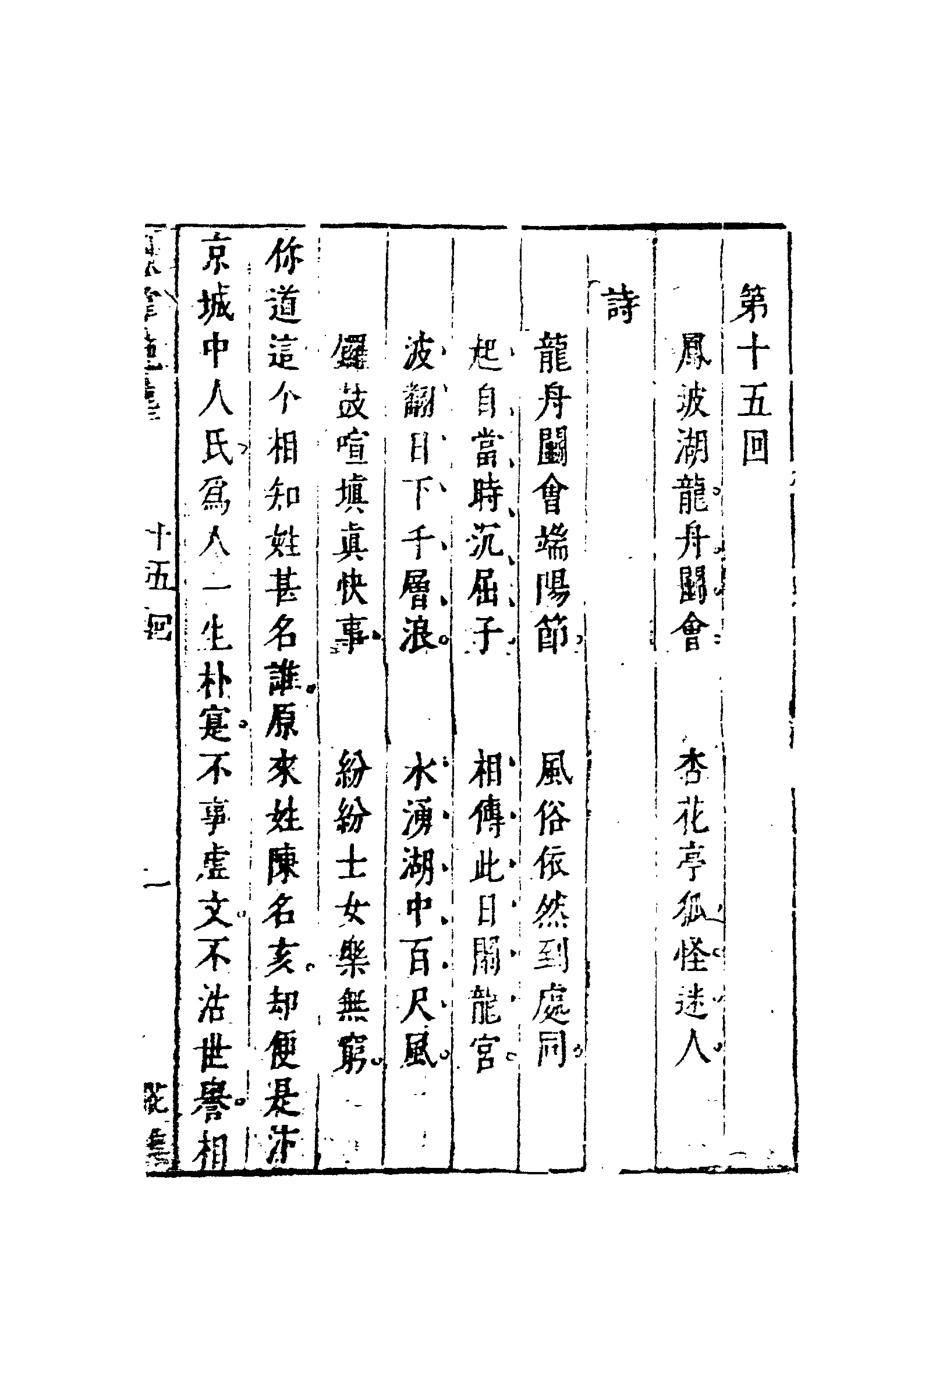 第十五回
鳳坡湖龍舟鬭會　杏花亭狐怪迷人
詩
龍舟鬭會端陽節　風俗依然到處同
起自當時沉屈子　相傳此日閙龍宮
波翻日下千層浪　水湧湖中百尺風
鑼鼓喧填眞快事　紛紛士女樂無窮
你道這个相知姓甚名誰原來姓陳名亥却便是汴
京城中人氏爲人一生朴寔不事虛文不沽世譽相
十五回　一